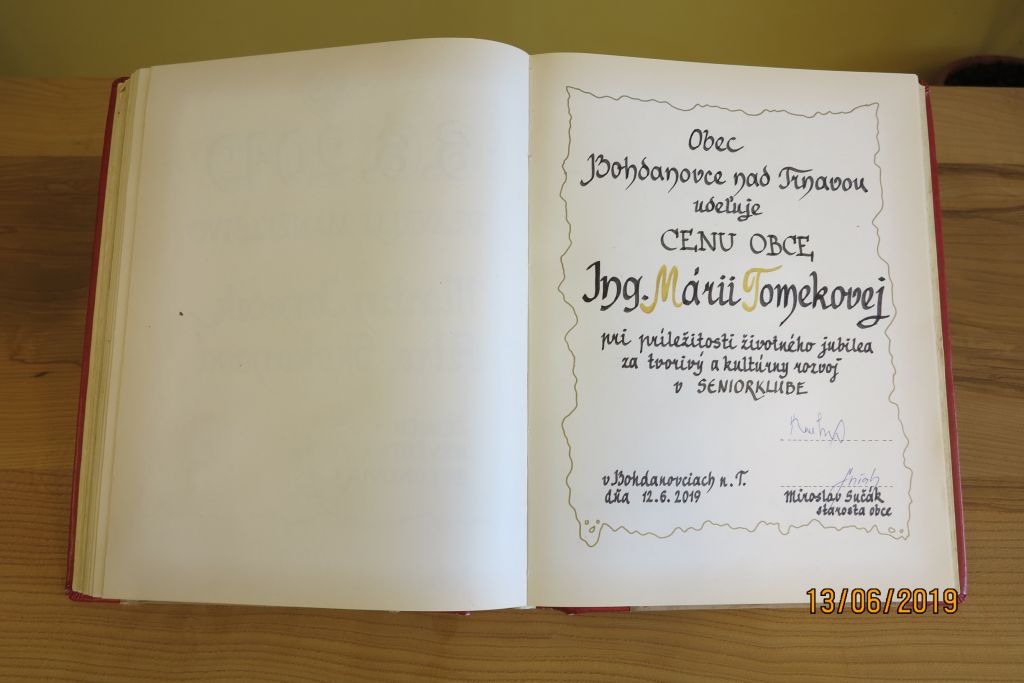 Obec
Bohdanovce nad Trnavou
udeľuje
CENU OBCE
Ing. Márii Tomekovej
pri príležitosti životného jubilea
za tvorivý a kultúrny rozvoj
v SENIORKLUBE
v Bohdanovciach n. T.
dňa 12.6.2019
Miroslav Sučák
starosta obce
13/06/2019